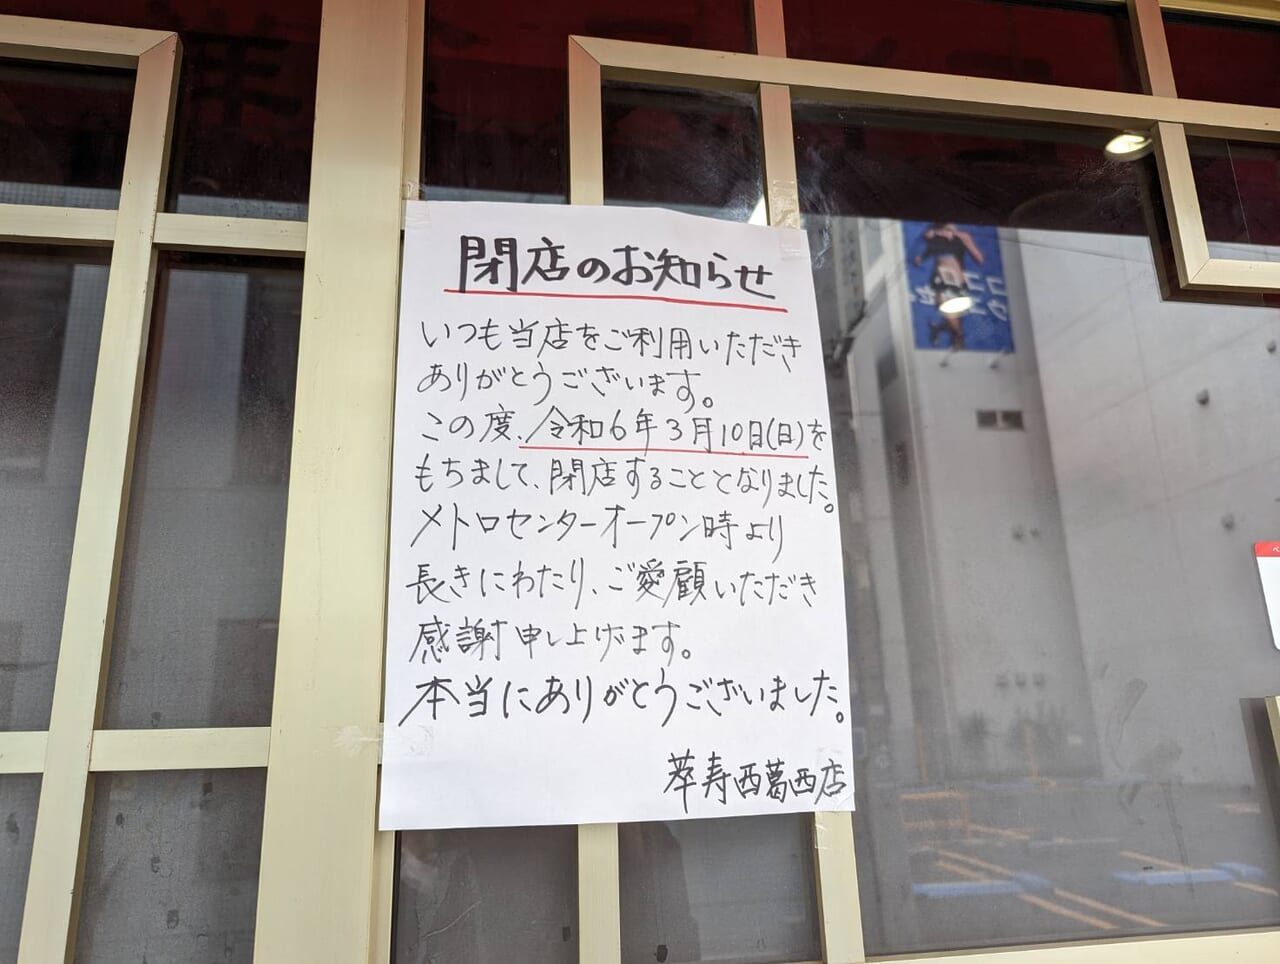 閉店のお知らせ
いつも当店をご利用いただき
ありがとうございます。
この度、令和6年3月10日(日)を
もちまして、閉店することとなりました。
メトロセンターオープン時より
長きにわたり、ご愛顧いただき
感謝申し上げます。
本当にありがとうございました。
萃寿西葛西店